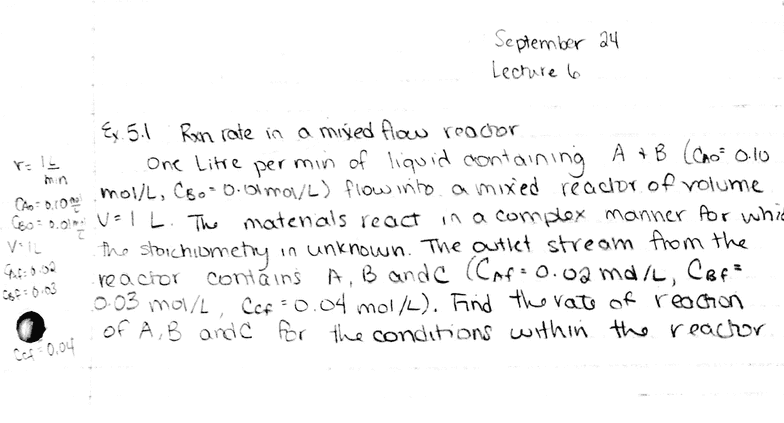 September 24
Lecture 6
Ex. 5.1 Rxn rate in a mixed flow reactor
One Litre per min of liquid containing A + B (CA0 = 0.10
mol/L, CB0 = 0.01 mol/L) flow into a mixed reactor of volume
V = 1 L. The materials react in a complex manner for whic
the stoichiometry in unknown. The outlet stream from the
reactor contains A, B and C (CAf = 0.02 mol/L, CBf =
0.03 mol/L, Ccf = 0.04 mol/L). Find the rate of reaction
of A, B and C for the conditions within the reactor
r = 1 L/min
CA0 = 0.10 mol/L
CB0 = 0.01 mol/L
V = 1L
CAf = 0.02
CBf = 0.03
Ccf = 0.04